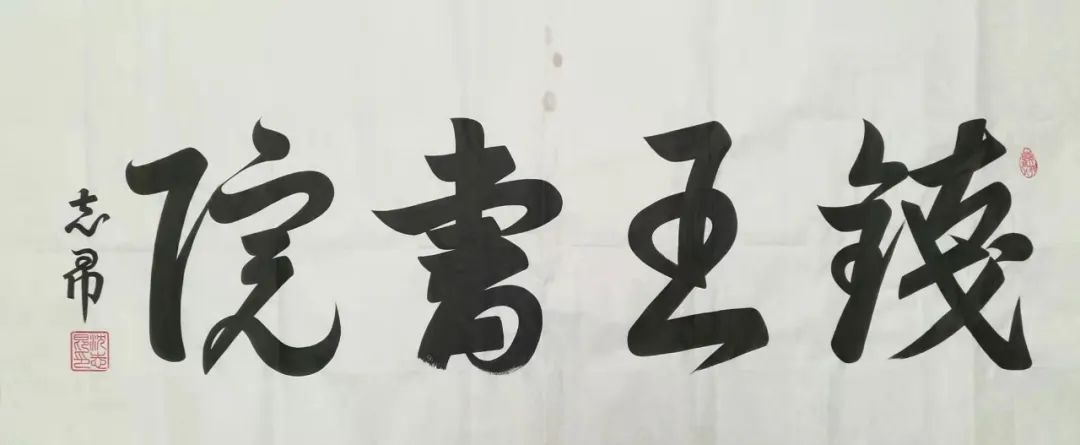 錢王書院
志昂